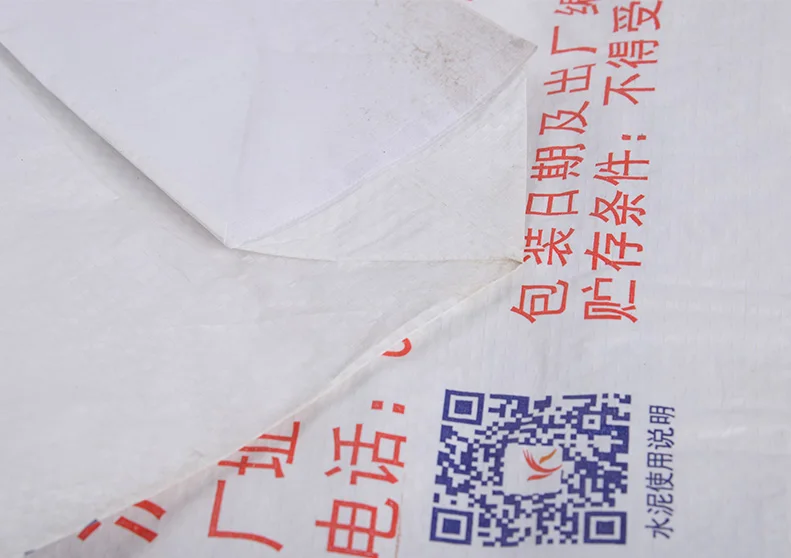 包装日期及出厂编
贮存条件：不得受
厂址
电话：
水泥使用说明